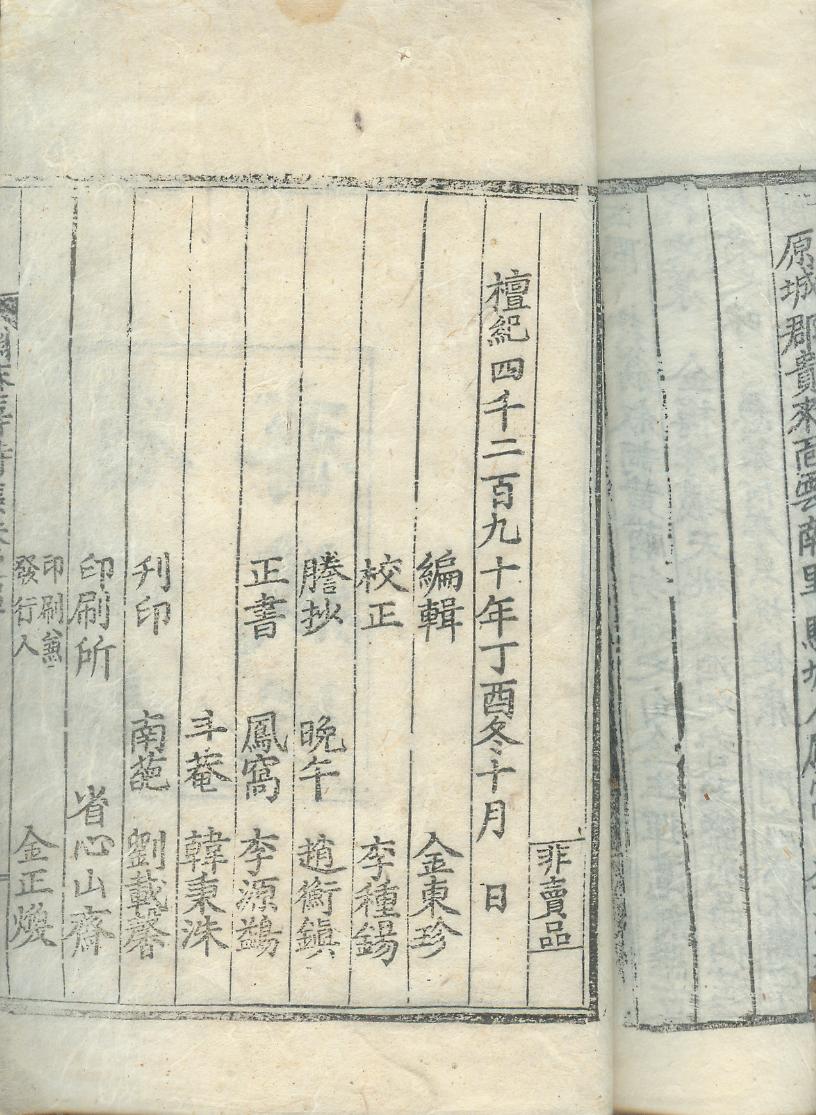 原城郡貴來面雲南里
非賣品
檀紀四千二百九十年丁酉冬十月 日
編輯 金東珍
校正 李種錫
謄抄 晩午 趙衡鎭
正書 鳳窩 李源鷊
斗菴 韓秉洙
刋印 南葩 劉載馨
印刷所 省心山齋
印刷兼
發行人 金正煥